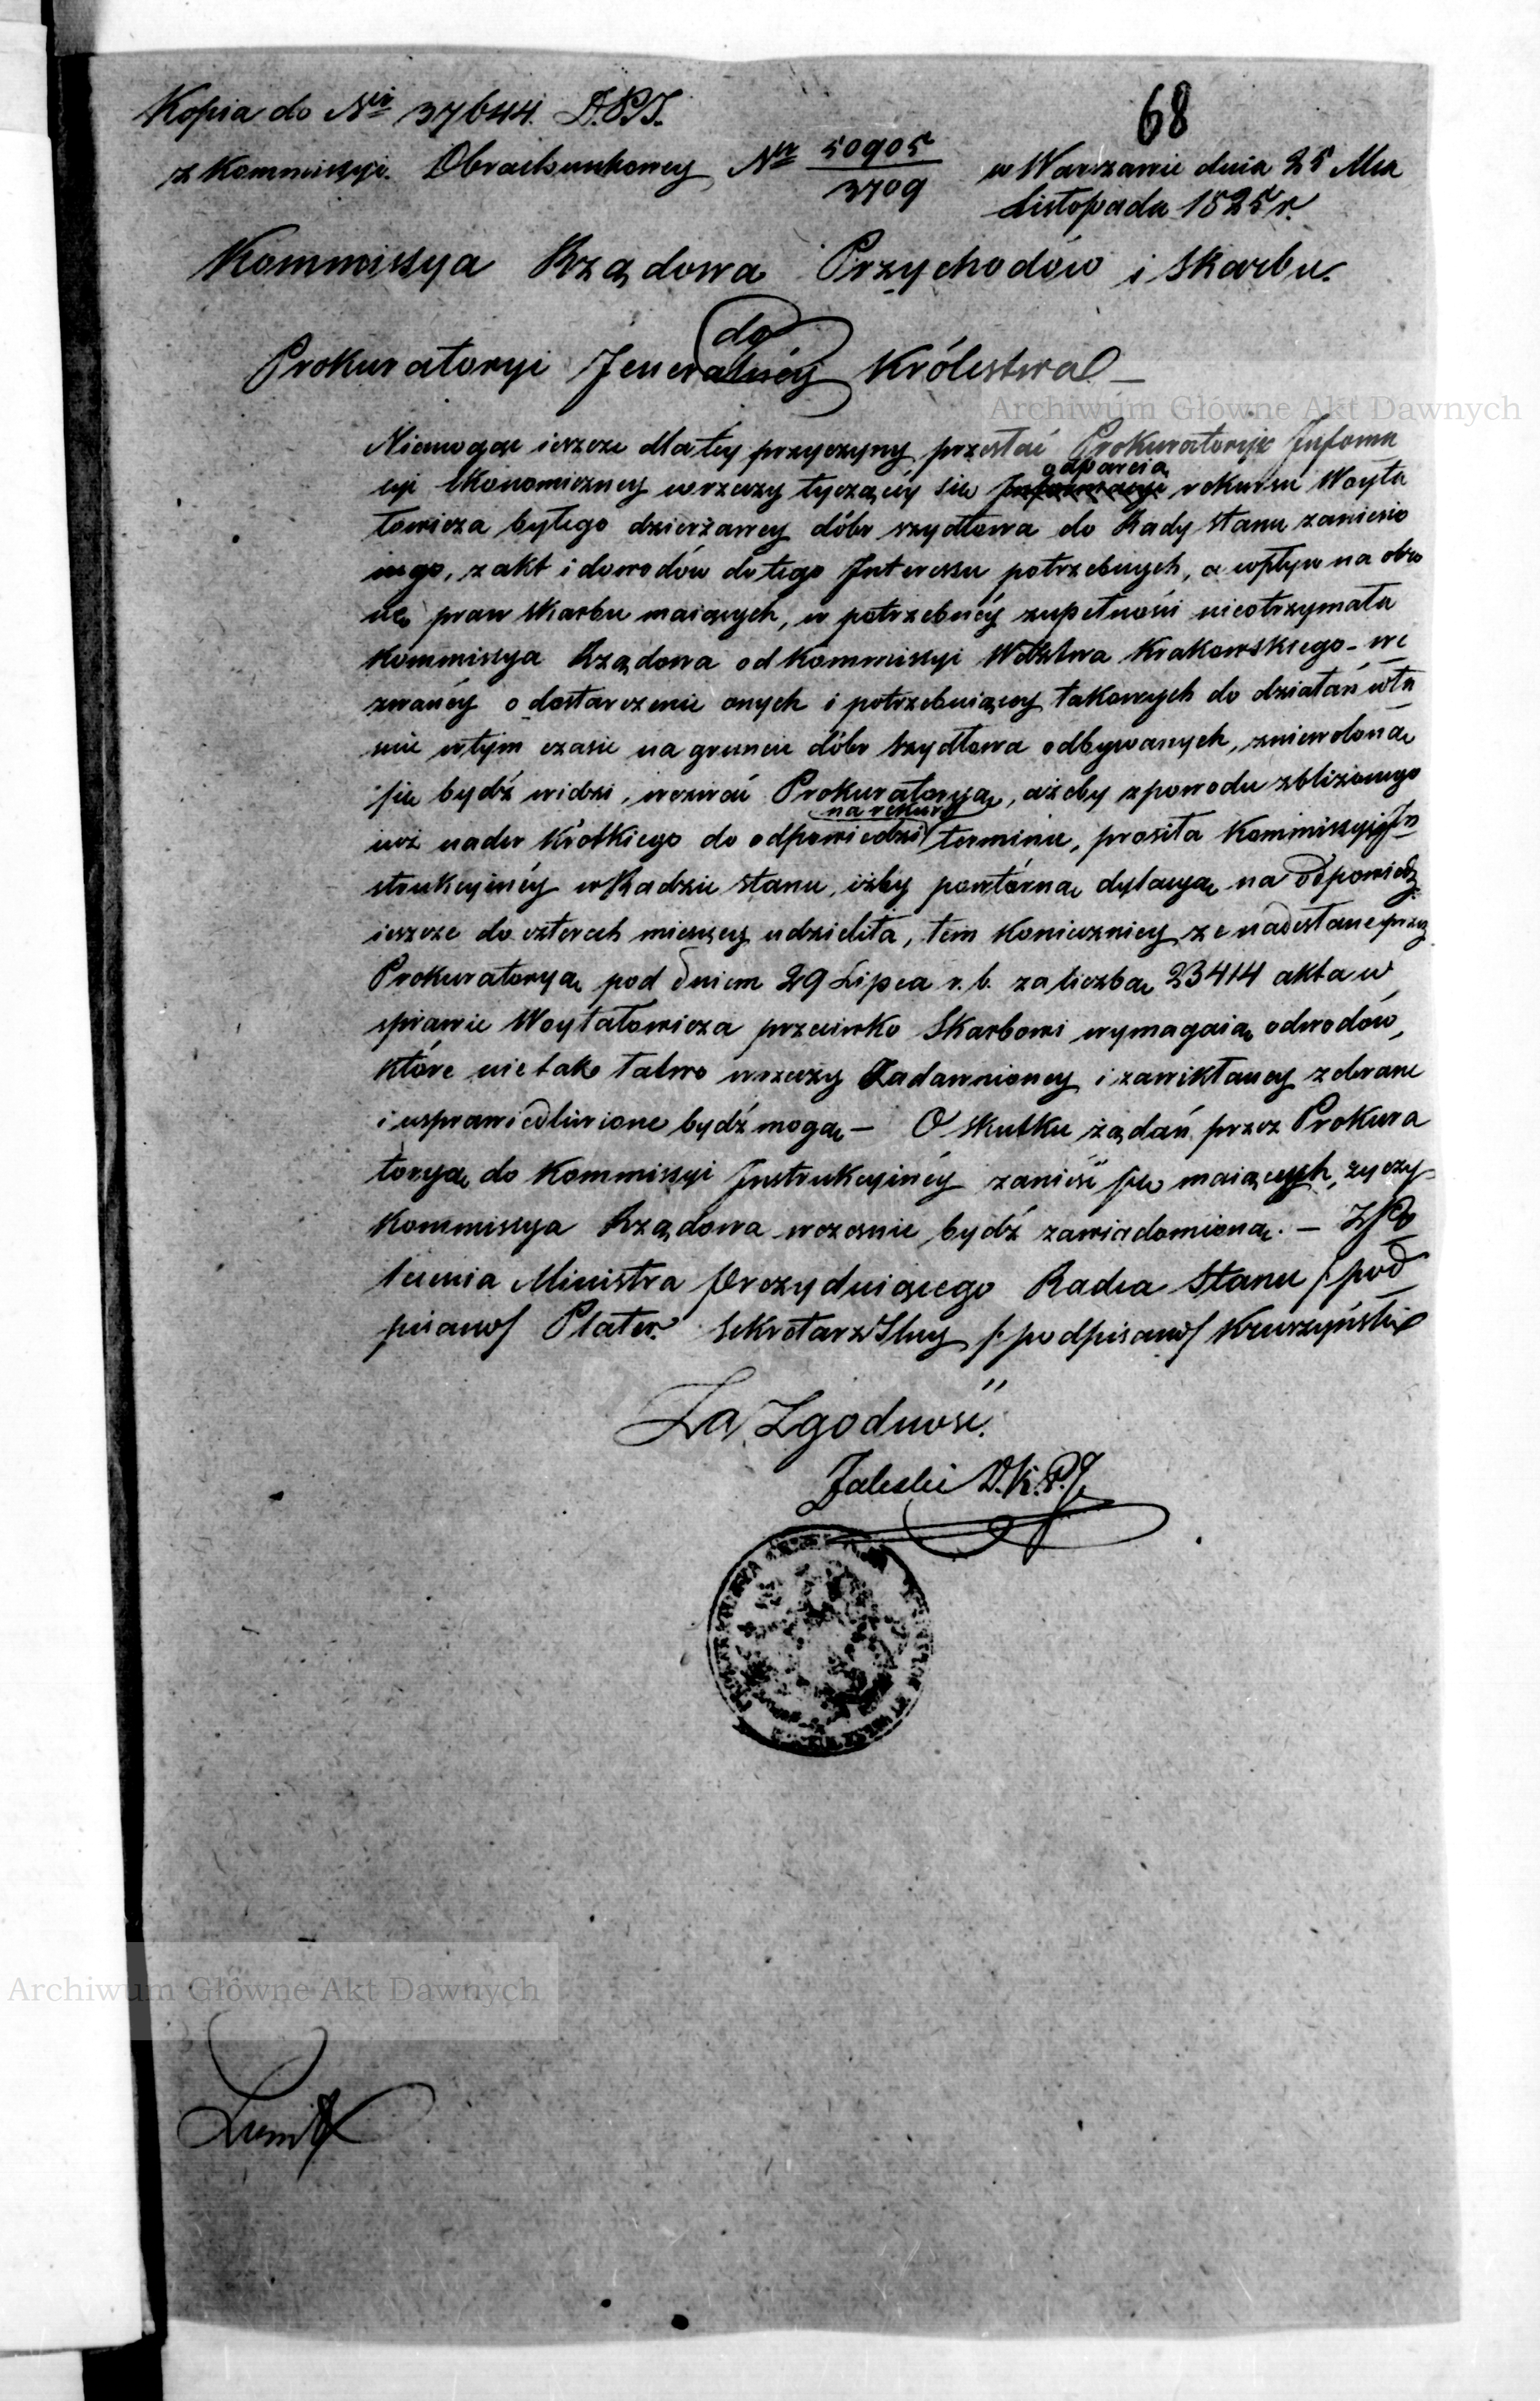 68
Kopia do Nri 37644. D.P.J.
z Kommissyi Obrachunkowey Nr 50905/3709 w Warszawie dnia 25 Mca
Listopada 1825 r.
Kommissya Rządowa Przychodów i Skarbu.
do
Prokuratoryi Jeneralnéy Królestwa
Archiwum Główne Akt Dawnych
Niemogąc ieszcze dla tey przyczyny przesłać Prokuratoryi Informa
cyi Ekonomiczney w rzeczy tyczącéy się odparcia rekursu Woyta
łowicza byłego dzierżawcy dóbr Szydłowa do Rady Stanu zaniesio
nego, z akt i dowodów do tego Interessu potrzebnych, a wpływ na obro
nę praw Skarbu maiących, w potrzebnéy zupełności nieotrzymała
Kommissya Rządowa od Kommissyi Wdztwa Krakowskiego we
zwanéy o dostarczenie onych i potrzebuiącey takowych do działań wła
śnie w tym czasie na gruncie dóbr Szydłowa odbywanych, zniewoloną
się bydź widzi, wezwać Prokuratoryą, ażeby z powodu zbliżonego
iuż nader krótkiego do odpowiedzi na rekurs terminu, prosiła Kommissyi In
strukcyinéy w Radzie Stanu, iżby powtórną dylacyą na odpowiedź
ieszcze do czterech miesięcy udzieliła, tem konieczniey że nadesłane przez
Prokuratoryą pod dniem 29 Lipca r. b. za liczbą 23414 akta w
sprawie Woytałowicza przeciwko Skarbowi wymagaią odwodów,
które nie tak łatwo w rzeczy zadawnioney i zawikłaney zebrane
i usprawiedliwione bydź mogą – O skutku żądań przez Prokura
toryą do Kommissyi Instrukcyinéy zanieść się maiących, życzy
Kommissya Rządowa wcześnie bydź zawiadomioną. – Z Po
lecenia Ministra Prezyduiącego Radca Stanu /: pod
pisano/ Plater. Sekretarz Jlny /: podpisano/ Kruszyński
Za Zgodność
Zaleski D.K.P.J.
Archiwum Główne Akt Dawnych